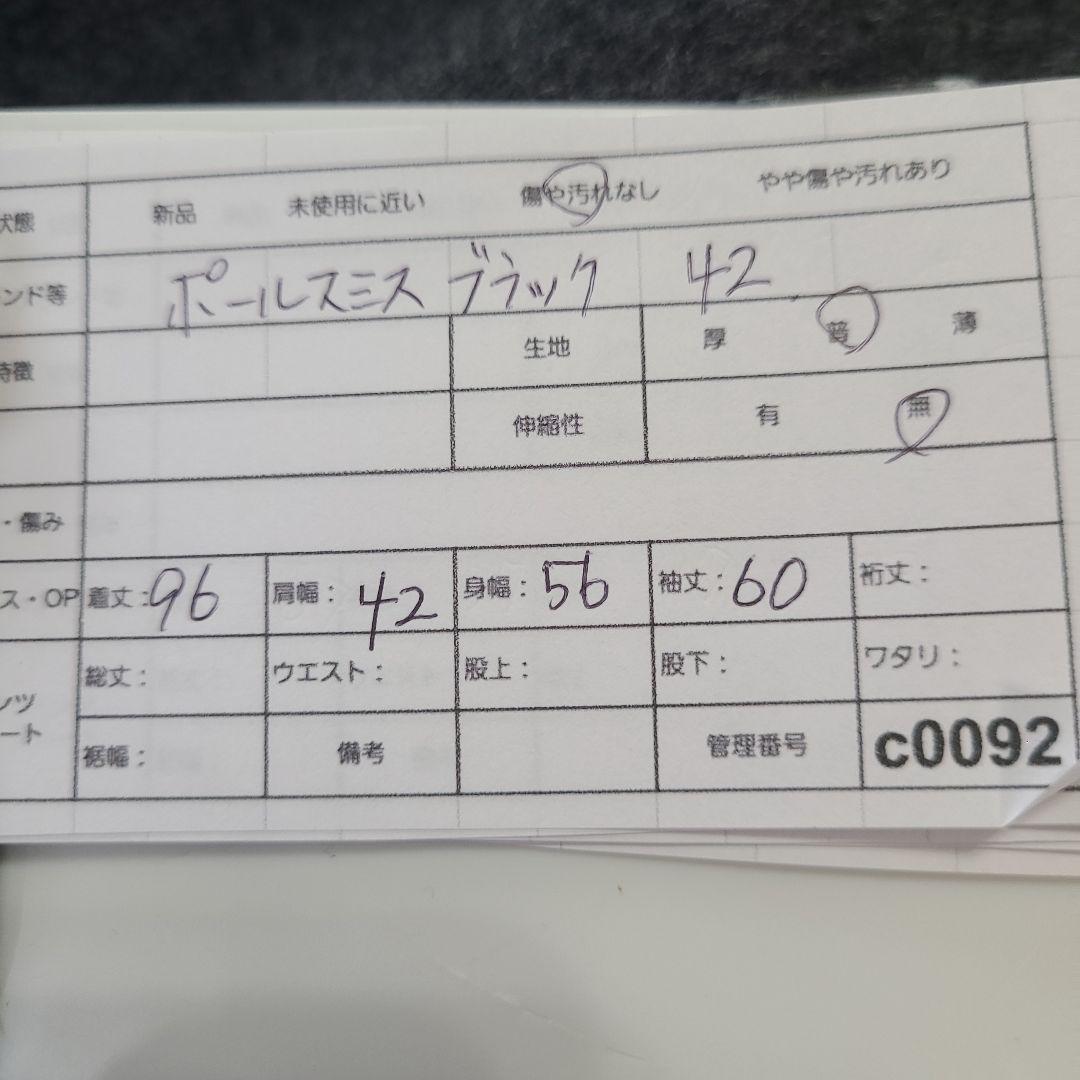 状態 新品 未使用に近い 傷や汚れなし やや傷や汚れあり
ンド等 ポールスミス ブラック 42
特徴 生地 厚 普 薄
伸縮性 有 無
・傷み
ス・OP 着丈：96 肩幅：42 身幅：56 袖丈：60 裄丈：
ンツ
ート
総丈： ウエスト： 股上： 股下： ワタリ：
裾幅： 備考 管理番号 c0092